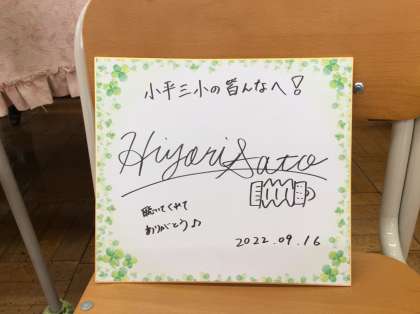 小平三小の皆んなへ!
Hiyori Sato
聴いてくれて
ありがとう♪
2022.09.16